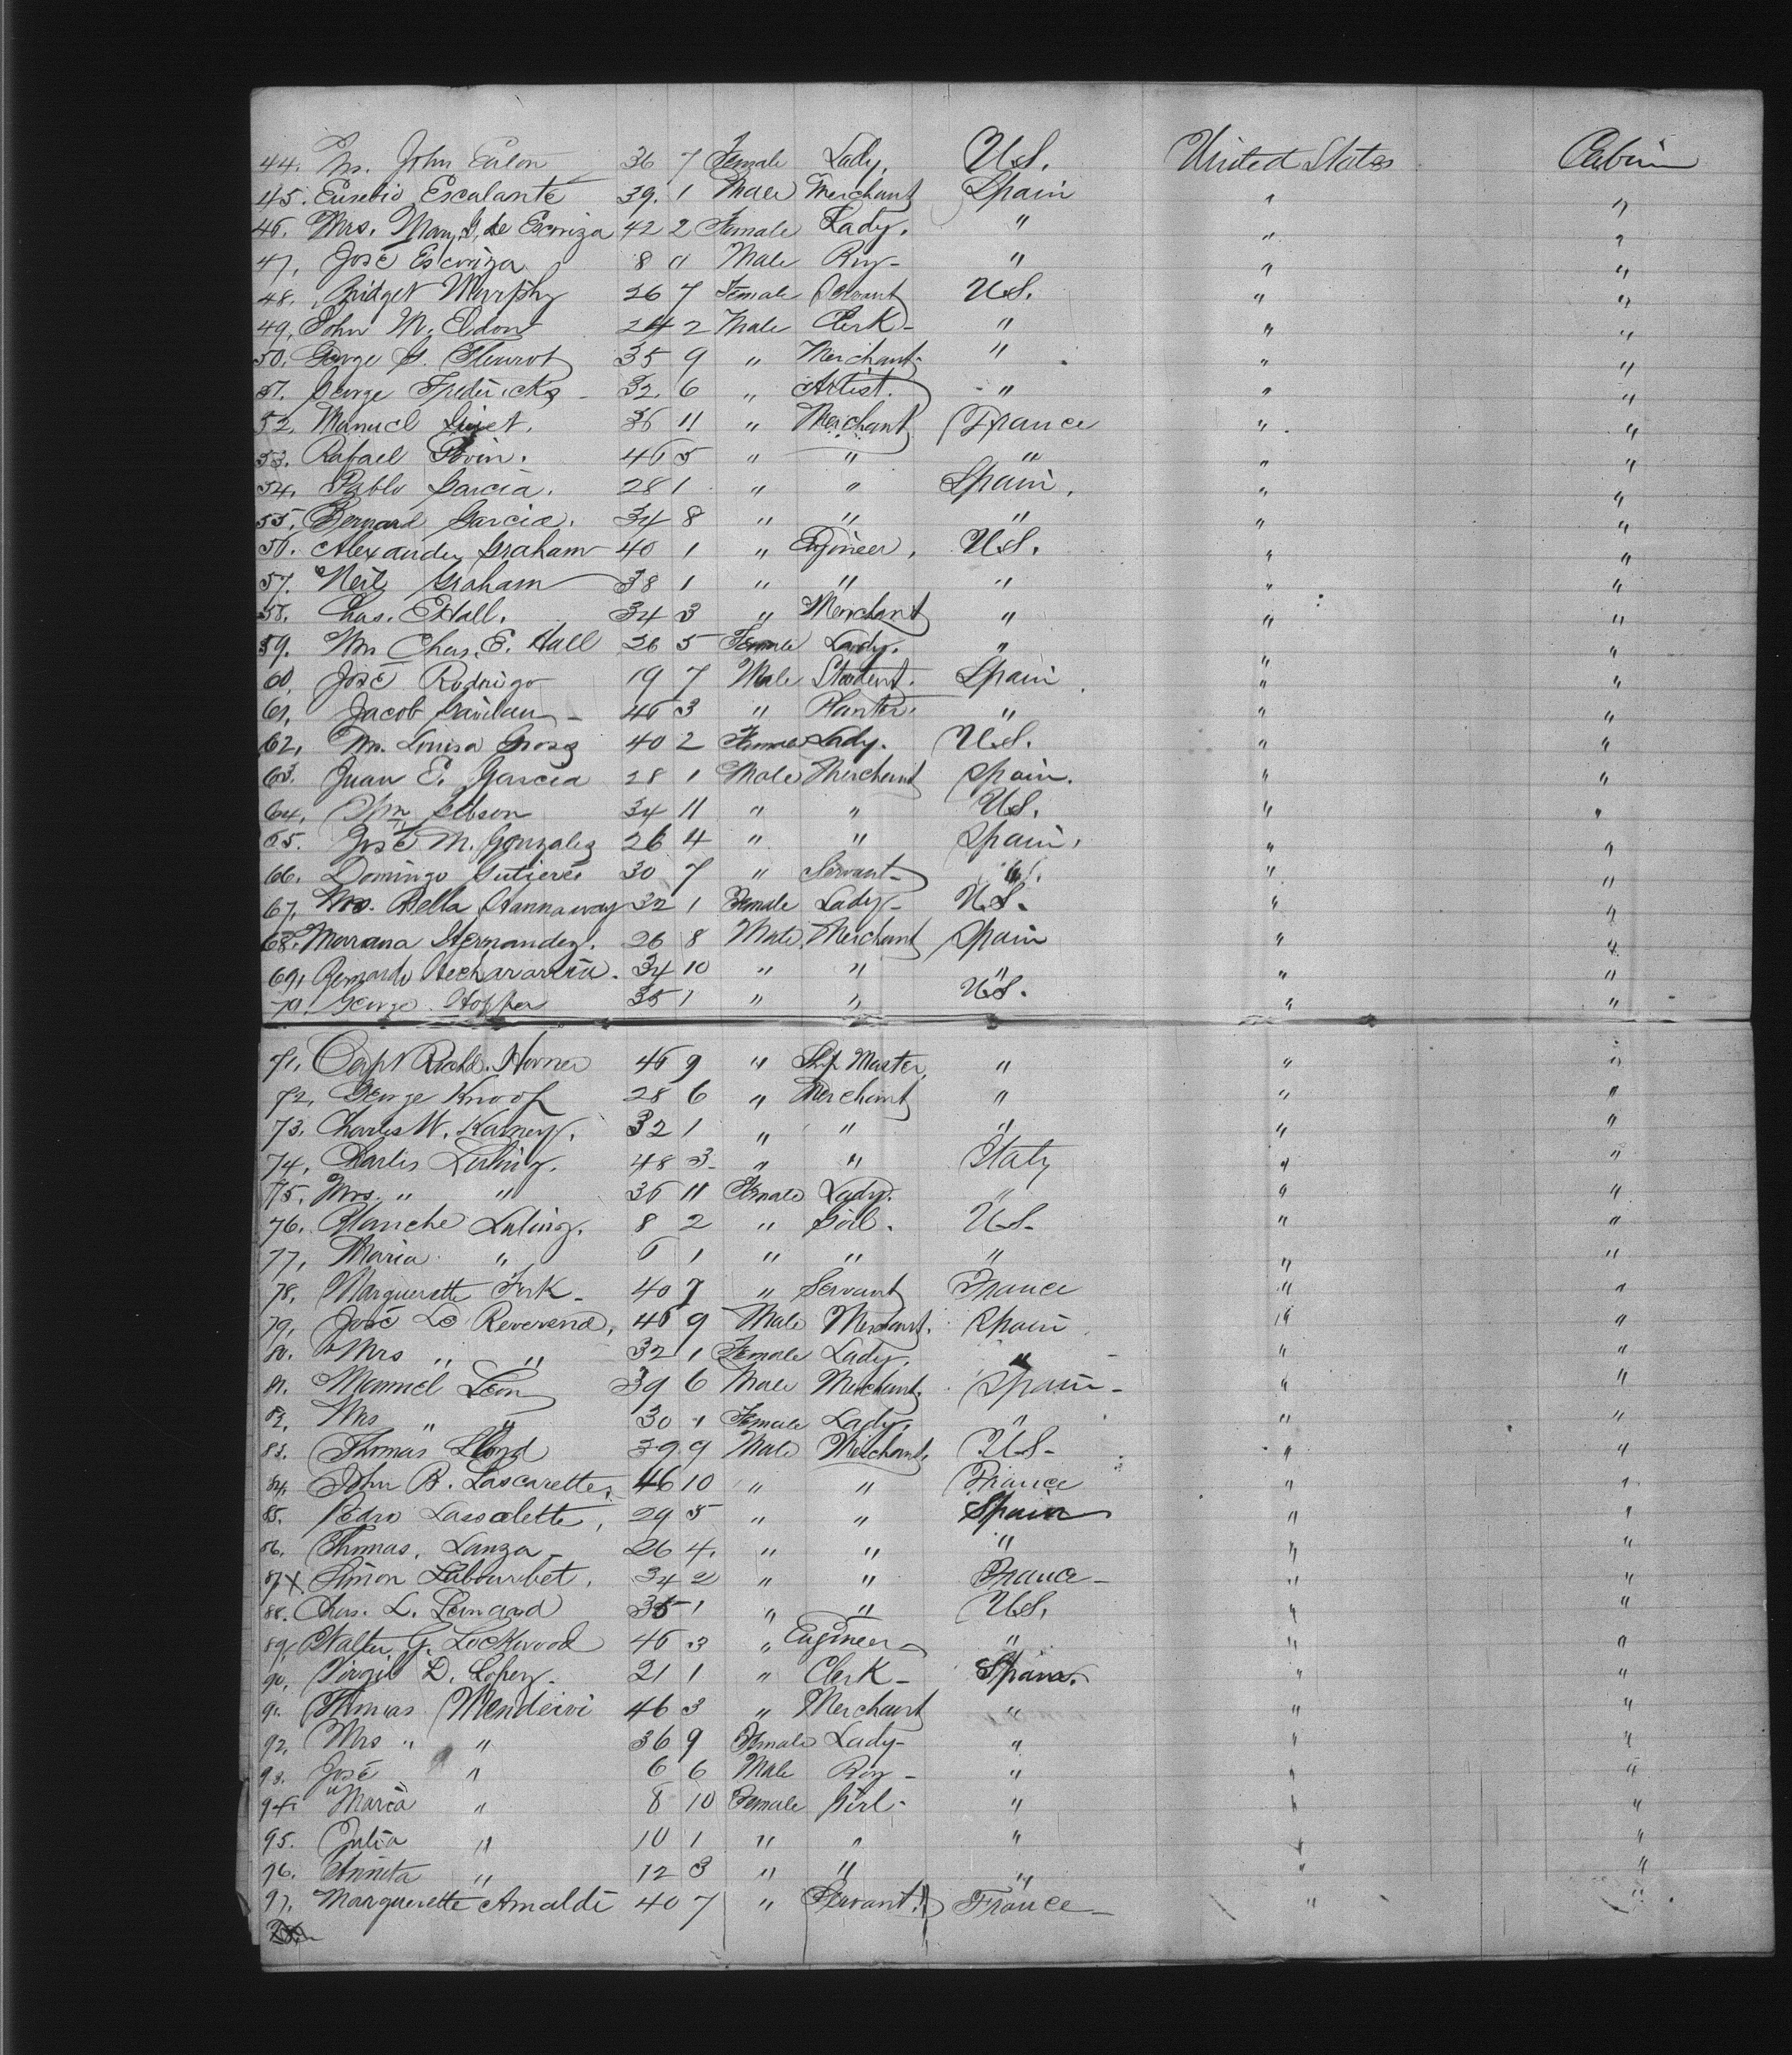 44. Mrs. John Eaton 36 7 Female Lady. U.S. United States Cabin
45. Eusebio Escalante 39. 1 Male Merchant Spain " "
46. Mrs. Mary G. de Escoriza 42 2 Female Lady. " " "
47. José Escoriza 8 " Male Boy - " " "
48. Bridget Murphy 26 7 Female Servant U.S. " "
49. John M. Edon 24 2 Male Clerk - " " "
50. George G. Fleurot 35 9 " Merchant - " " "
51. George Fredericks - 32. 6 " Artist. " " "
52. Manuel 36 11 " Merchant France " "
53. Rafael Govin. 46 5 " " " " "
54. Pablo Garcia. 28 1 " " Spain. " "
55. Bernard Garcia. 34 8 " " " " "
56. Alexander Graham 40 1 " Engineer. U.S. " "
57. Neil Graham 38 1 " " " " "
58. Chas. E Hall. 34 3 " Merchant " " "
59. Mrs Chas. E. Hall 26 5 Female Lady. " " "
60. José Rodrigo 19 7 Male Student. Spain " "
61. Jacob Gavilan - 46 3 " Planter. " " "
62. Mrs. Louisa Gross 40 2 Female Lady. U.S. " "
63. Juan E. Garcia 28 1 Male Merchant Spain. " "
64. Wm Gibson 34 11 " " U.S. " "
65. José M. Gonzalez 26 4 " " Spain. " "
66. Domingo Gutierrez 30 7 " Servant - " " "
67. Mrs. Bella Hannaway 32 1 Female Lady - U.S. " "
68. Mariana Hernandez. 26 8 Male. Merchant Spain " "
69. Bernardo 34 10 " " " " "
70. George Hopper 35 1 " " U.S. " "
71. Capt Richd. Horner 46 9 " Ship Master. " " "
72. George Knoop 28 6 " Merchant " " "
73. Charles W. Karney. 32 1 " " " " "
74. Charles Luling. 48 3 " " Italy " "
75. Mrs. " " 36 11 Female Lady. " " "
76. Blanche Luling. 8 2 " Girl. U.S. " "
77. Maria " 6 1 " " " " "
78. Marguerette Fork - 40 7 " Servant France " "
79. José Le Reverend. 46 9 Male Merchant. Spain " "
80. Mrs " " 32 1 Female Lady. " " "
81. Manuel Leon 39 6 Male Merchant. Spain - " "
82. Mrs " " 30 1 Female Lady. " " "
83. Thomas Lloyd 39 9 Male Merchant. U.S. " "
84. John B. Lascarettes. 46 10 " " France " "
85. Pedro Lassalette. 29 5 " " Spain " "
86. Thomas. Lanza - 26 4. " " " " "
87 x. Simon Labourbet. 34 2 " " France - " "
88. Chas. L. Leonard 35 1 " " U.S. " "
89. Walter G. Lockwood 46 3 " Engineer " " "
90. Virgil D. Lopez - 21 1 " Clerk - Spain. " "
91. Thomas Mendeivi 46 3 " Merchant " " "
92. Mrs " " 36 9 Female Lady - " " "
93. José " 6 6 Male Boy - " " "
94. Maria " 8 10 Female Girl - " " "
95. Julia " 10 1 " " " " "
96. Annita " 12 3 " " " " "
97. Marguerette Arnaldi 40 7 " Servant. France - " "